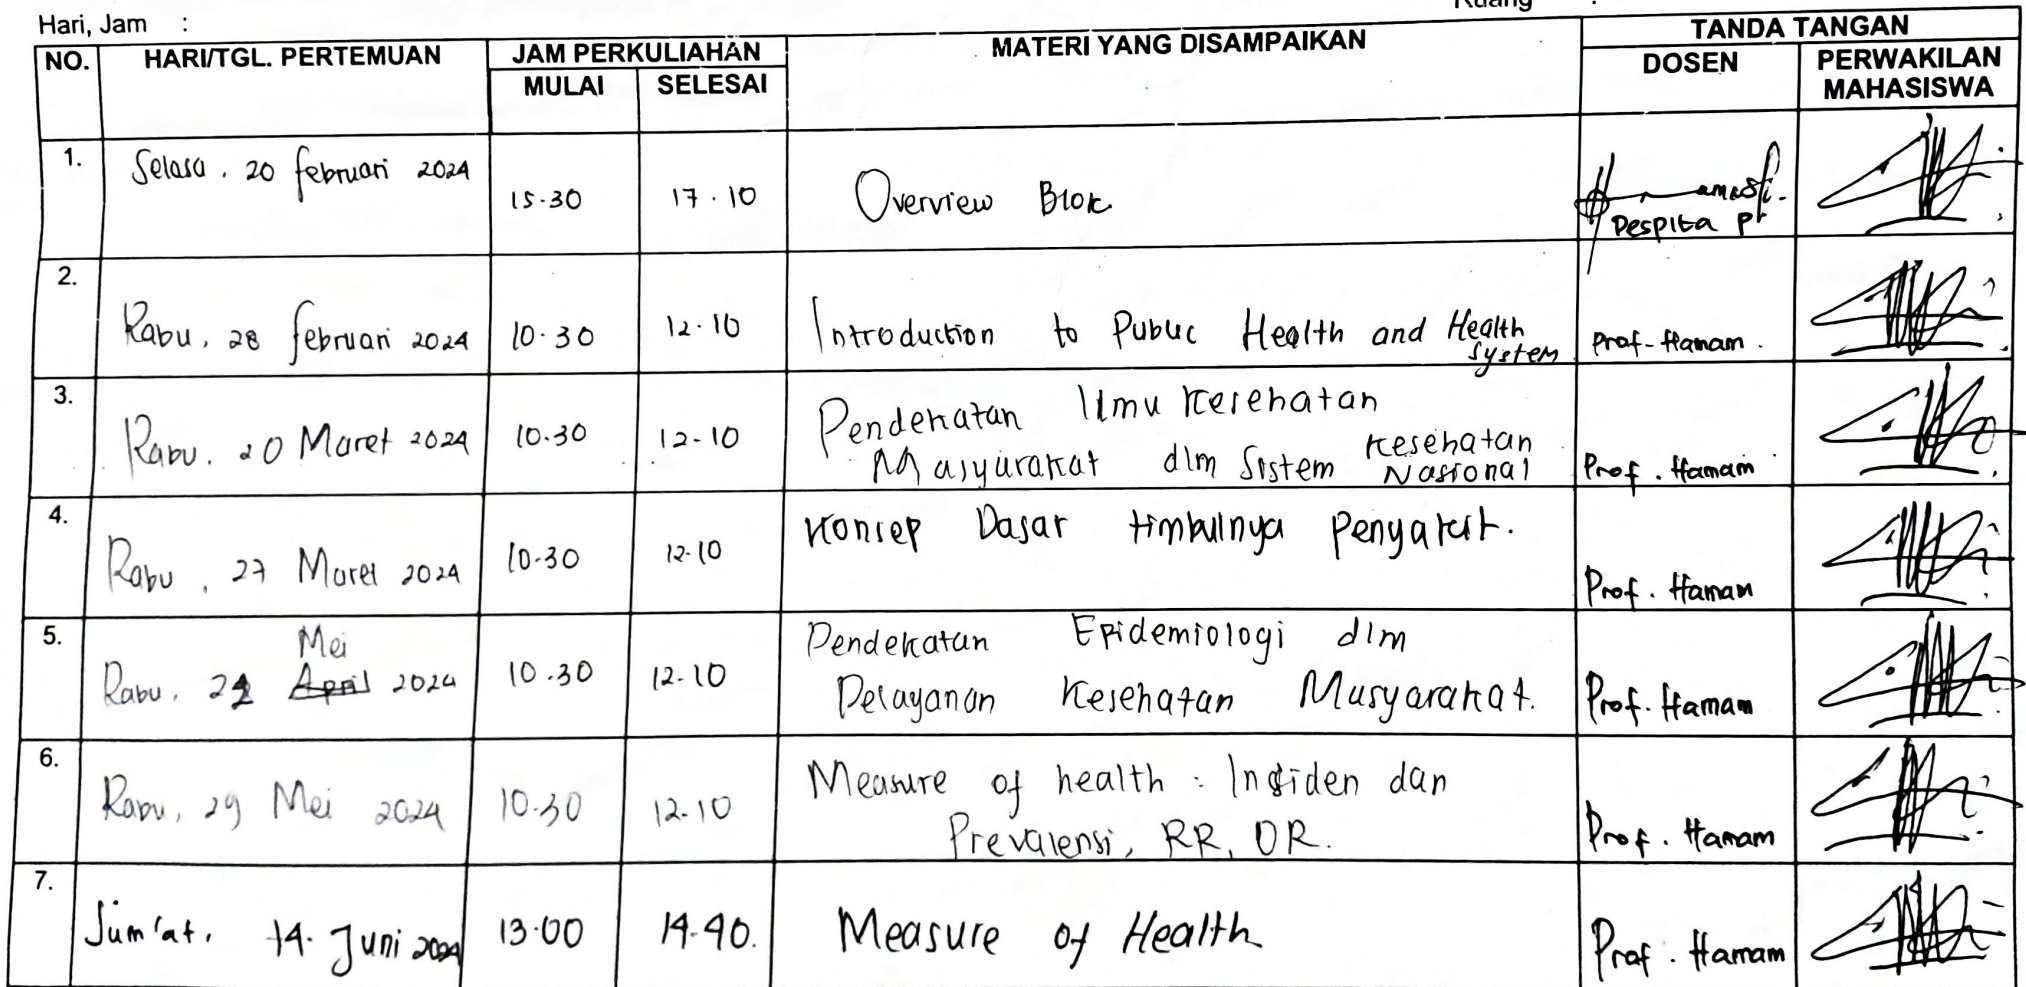 Hari, Jam :
Ruang :
NO. HARI/TGL. PERTEMUAN JAM PERKULIAHAN MATERI YANG DISAMPAIKAN TANDA TANGAN
MULAI SELESAI DOSEN PERWAKILAN MAHASISWA
1. Selasa, 20 februari 2024 15.30 17.10 Overview Blok
Despita
2. Rabu, 28 februari 2024 10.30 12.10 Introduction to Public Health and Health
system Prof. Hamam
3. Rabu, 20 Maret 2024 10.30 12.10 Pendekatan Ilmu Kesehatan
Masyarakat dlm Sistem Kesehatan
Nasional Prof. Hamam
4. Rabu, 27 Maret 2024 10.30 12.10 Konsep Dasar timbulnya Penyakit.
Prof. Hamam
5. Mei
Rabu, 22 April 2024 10.30 12.10 Pendekatan Epidemiologi dlm
Pelayanan Kesehatan Masyarakat. Prof. Hamam
6. Rabu, 29 Mei 2024 10.30 12.10 Measure of health : Insiden dan
Prevalensi, RR, OR. Prof. Hamam
7. Jum'at, 14 Juni 2024 13.00 14.40. Measure of Health Prof. Hamam